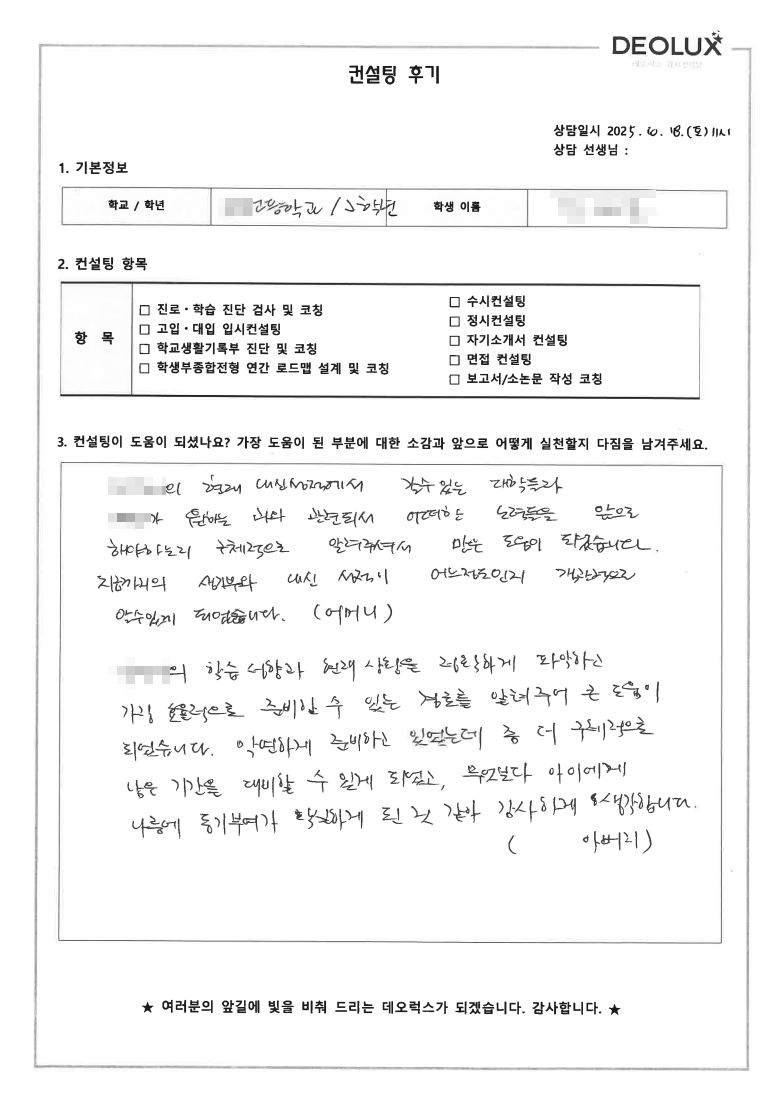 DEOLUX
데오럭스 입시컨설팅
컨설팅 후기
상담일시 2025. 10. 18.(토) 11시
상담 선생님 :
1. 기본정보
학교 / 학년 고등학교 / 2학년 학생 이름
2. 컨설팅 항목
항 목
□ 진로·학습 진단 검사 및 코칭
□ 고입·대입 입시컨설팅
□ 학교생활기록부 진단 및 코칭
□ 학생부종합전형 연간 로드맵 설계 및 코칭
□ 수시컨설팅
□ 정시컨설팅
□ 자기소개서 컨설팅
□ 면접 컨설팅
□ 보고서/소논문 작성 코칭
3. 컨설팅이 도움이 되셨나요? 가장 도움이 된 부분에 대한 소감과 앞으로 어떻게 실천할지 다짐을 남겨주세요.
의 현재 내신성적에서 갈수 있는 대학들과
가 원하는 과와 관련되서 어떠한 노력들을 앞으로
해야하는지 구체적으로 알려주셔서 많은 도움이 되었습니다.
지금까지의 생기부와 내신 성적이 어느정도인지 객관적으로
알수있게 되었습니다. (어머니)
의 학습 성향과 현재 상황을 정확하게 파악하고
가장 효율적으로 준비할 수 있는 경로를 알려주어 큰 도움이
되었습니다. 막연하게 준비하고 있었는데 좀 더 구체적으로
남은 기간을 대비할 수 있게 되었고, 무엇보다 아이에게
나름에 동기부여가 확실하게 된 것 같아 감사하게 생각합니다.
( 아버지)
★ 여러분의 앞길에 빛을 비춰 드리는 데오럭스가 되겠습니다. 감사합니다. ★